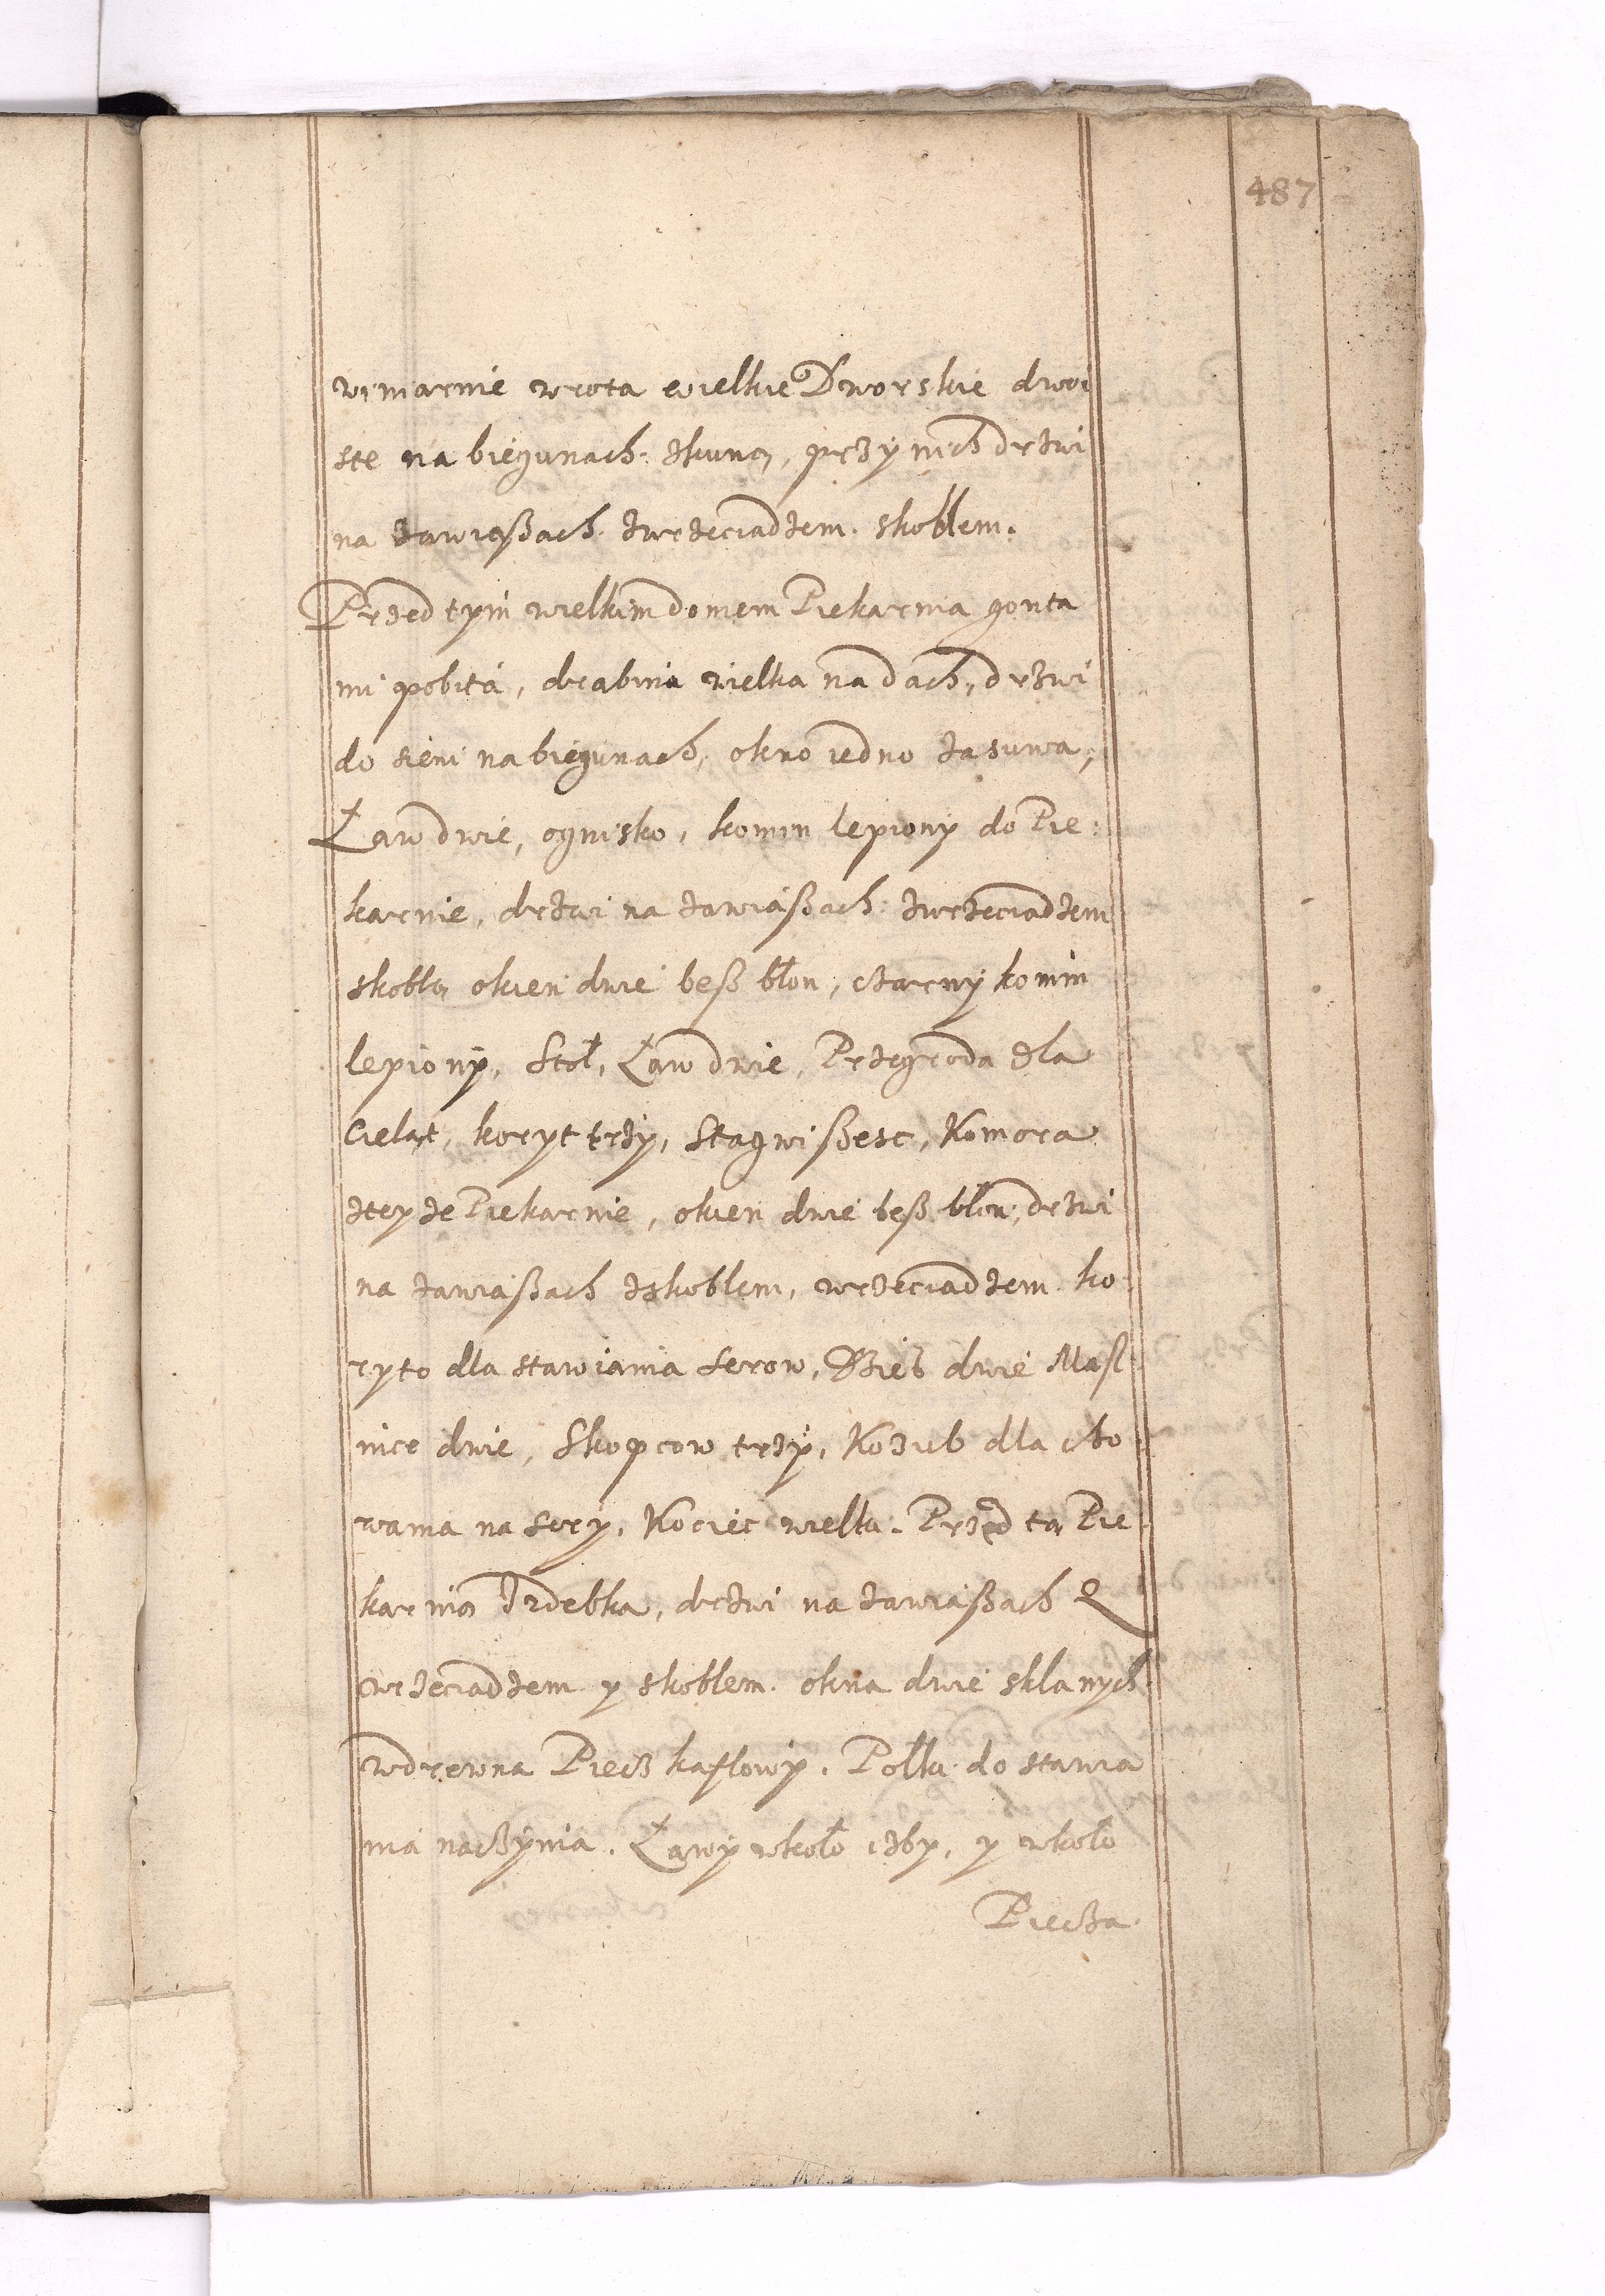 487
winiarnie wrota wielkie Dworskie dwoi
ste na biegunach zkuną, przy nich drzwi
na zawiaßach zwrzeciadzem skoblem.
Przed tym wielkim domem Piekarnia gonta
mi pobita, drabina wielka na dach, drzwi
do sieni na biegunach, okno iedno zasuwa,
Ław dwie, ognisko, komin lepiony do Pie:
karnie, drzwi na zawiaßach zwrzeciadzem
skoblą okien dwie beß błon, czarny komin
lepiony, Stoł, Ław dwie, Przegroda dla
Cieląt, koryt trzy, Stągwi ßesc, Komora
zteyze Piekarnie, okien dwie beß błon, drzwi
na zawiaßach zskoblem, wrzeciadzem ko
ryto dla stawiania Serow, Dzież dwie Masl
nice dwie, Skopcow trzy, Kozub dla cho
wania na sery, Kociec wielki. Przed tą Pie
karnią Izdebka, drzwi na zawiaßach Z
wrzeciadzem y skoblem. okna dwie sklanych
wdrewna Piecz kaflowy. Polki do stawia
nia naczynia. Ławy wkoło izby, y wkoło
Piecza.